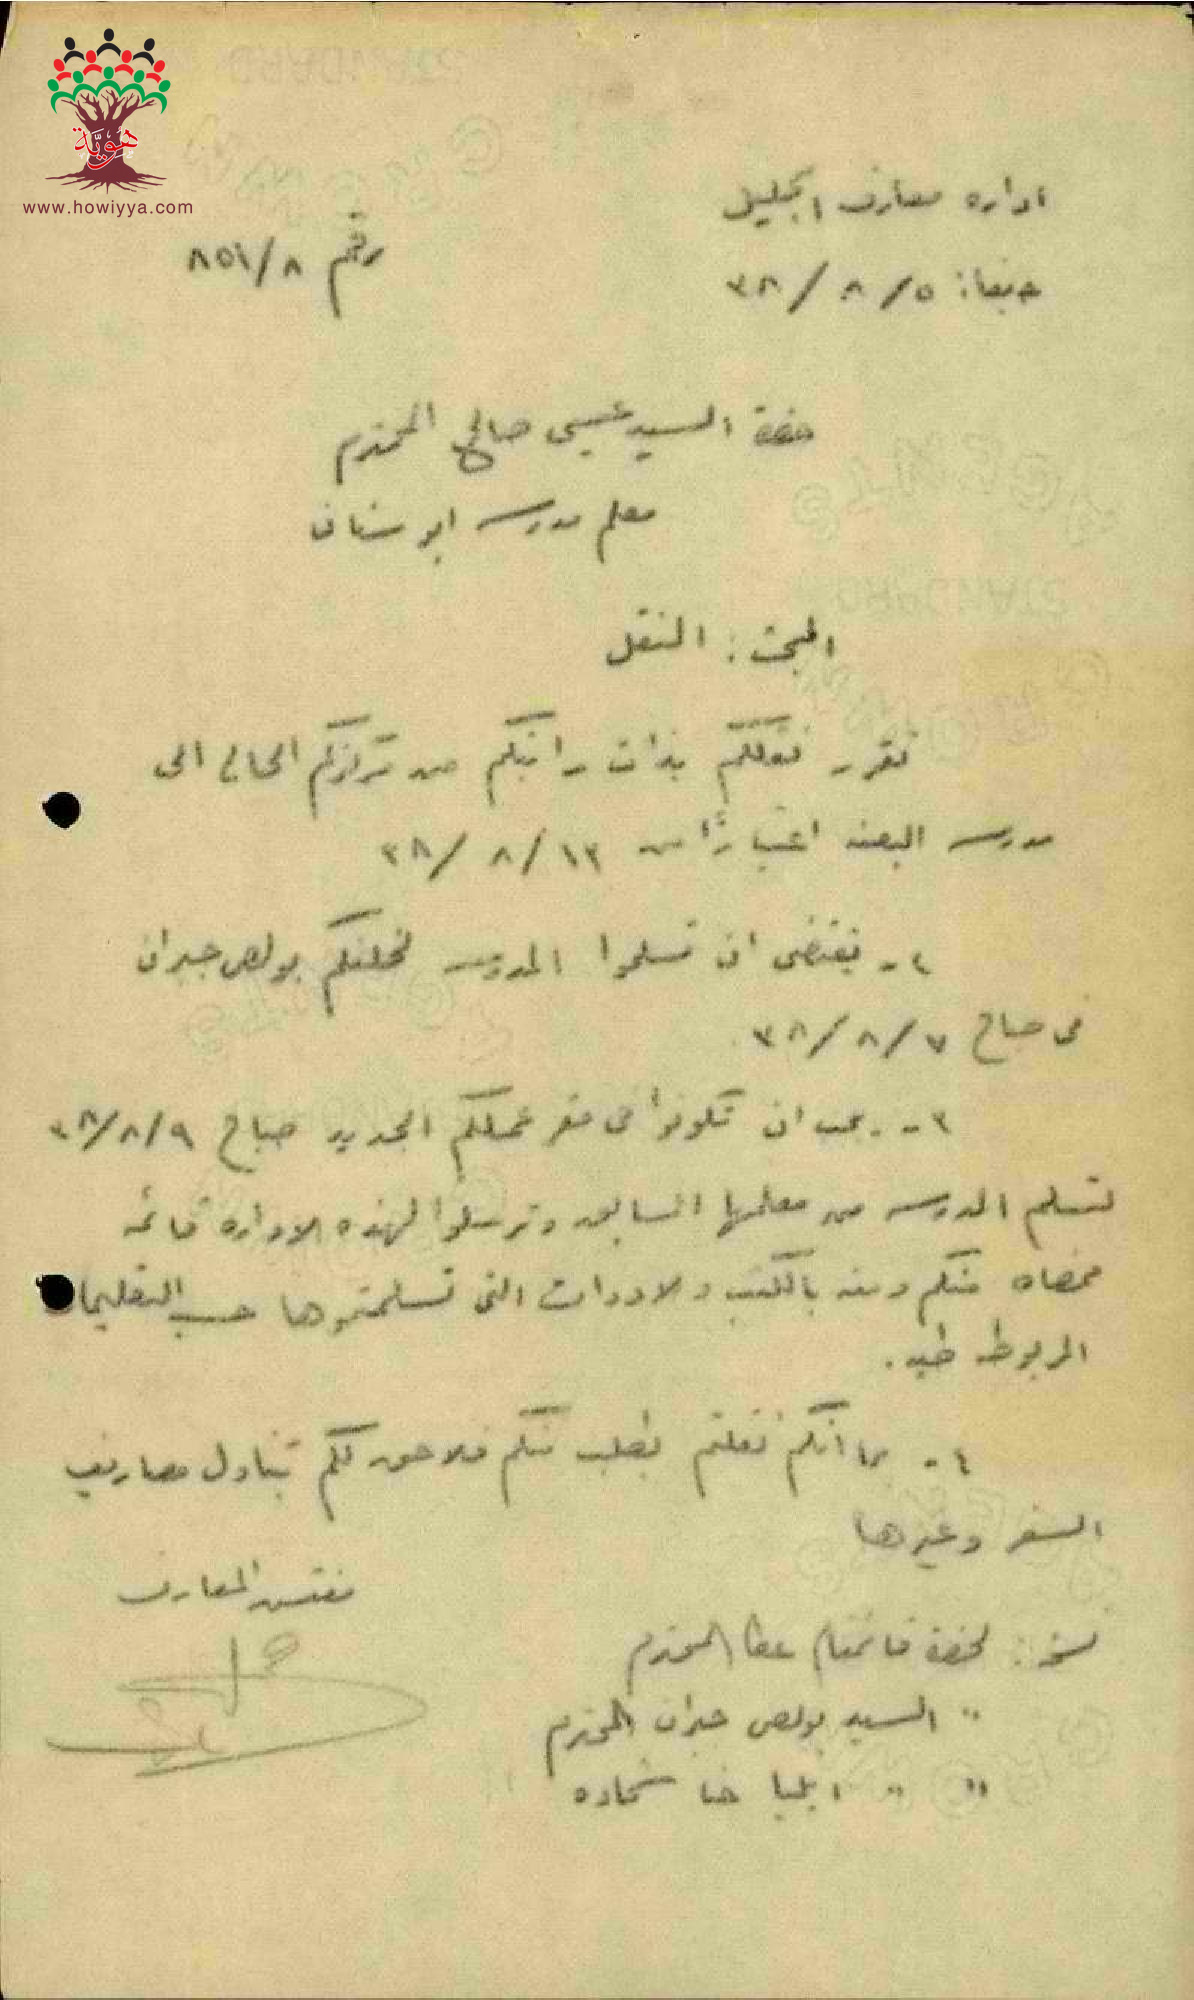 هُوِيَّة
www.howiyya.com
اداره معارف الجليل
رقم ٨٥١/٨
حيفا: ٥ / ٨ / ٣٨
حضرة السيد عيسى صالح المحترم
معلم مدرسه ابو سنان
المبحث: النقل
تقرر نقلكم بذات راتبكم من مركزكم الحالي الى
مدرسه البعنه اعتبارًا من ١٣ / ٨ / ٣٨
٢- يقتضى ان تسلموا المدرسه لخلفكم بولص جبران
في صباح ٧ / ٨ / ٣٨
٣- يجب ان تكونوا في مقر عملكم الجديد صباح ٩ / ٨ / ٣٨
لتسلم المدرسه من معلمها السابق وترسلوا لهذه الاداره قائمه
ممضاه منكم ومنه بالكتب والادوات التي تسلمتموها حسب التعليمات
المربوطه طيه.
٤- بما انكم نقلتم بطلب منكم فلا حق لكم بتناول مصاريف
السفر وغيرها
مفتش المعارف
نسخه: لحضرة قائمقام عكا المحترم
" السيد بولص جبران المحترم
" " ايليا حنا شحاده